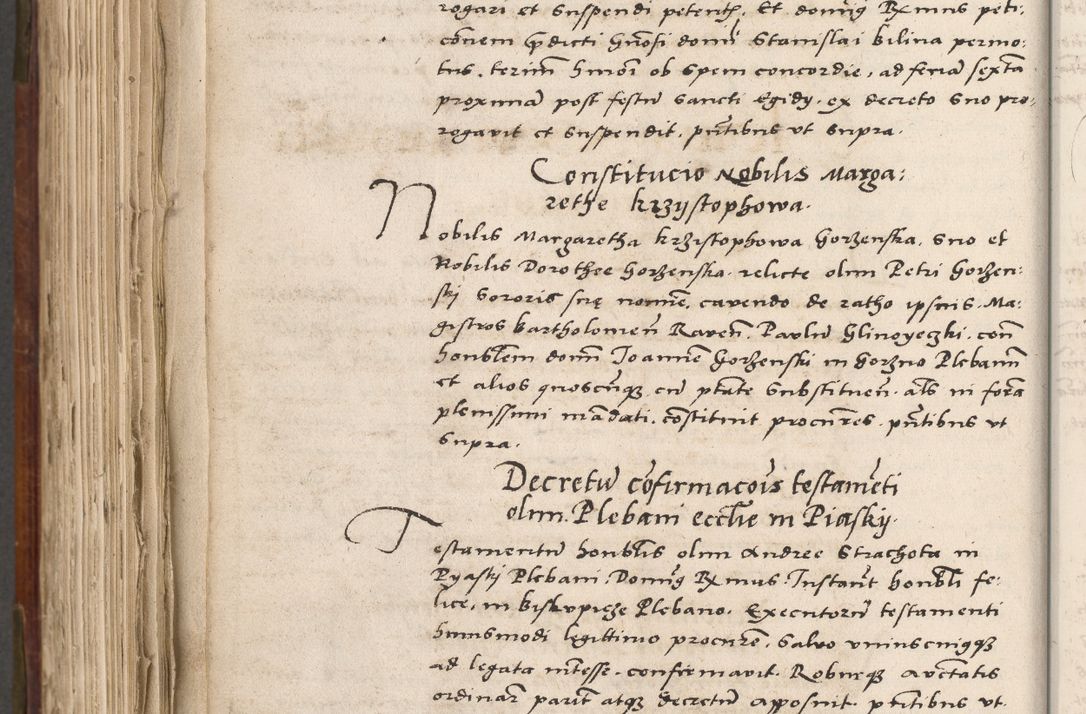 rogari et suspendi petenth. Et domig Rxmus peti:
cõnem pdicti gnosi domi Stanislai Kilina permo:
tus, terim hmoi ob spem concordie, ad feriã sexta
proximã post festũ Sancti Egidy. ex decreto suo pro:
rogavit et suspendit. pñtibus vt supra.
Constitucio Nobilis Marga:
rethe Krzÿstophowa.
Nobilis Margaretha Krzistophowa Gorzenska, suo et
Nobilis Dorothee Gorzenska. relicte olim Petri Gorzen:
ski Sororis sue nomine, cavendo de ratho ipsius. Ma:
gistros Bartholomeũ Raveñ. Paulũ Glinoyeczki.
honblem domñ Joannẽ Gorzenski in Gorzno Plebanũ
et alios quoscũq cũ ptate substitueñ. als in fora
plenissimi mãdati. cõstituit procures. pñtibus vt
supra.
Decretũ cõfirmacõis testamẽti
olim Plebani ecclie in Piaskÿ.
Testamentũ honblis olim Andree Strachota in
Pyaski Plebani. Domig Rxmus. Instant honbli fe:
lice, in Biskvpicze Plebano. Executorũ testamenti
huiusmodi legittimo procurẽ. Salvo uniuscuiqq
ad legata intesse. confirmavit. Roburq auctatis
ordinar parit atq decretũ apposuit. pñtibus vt.